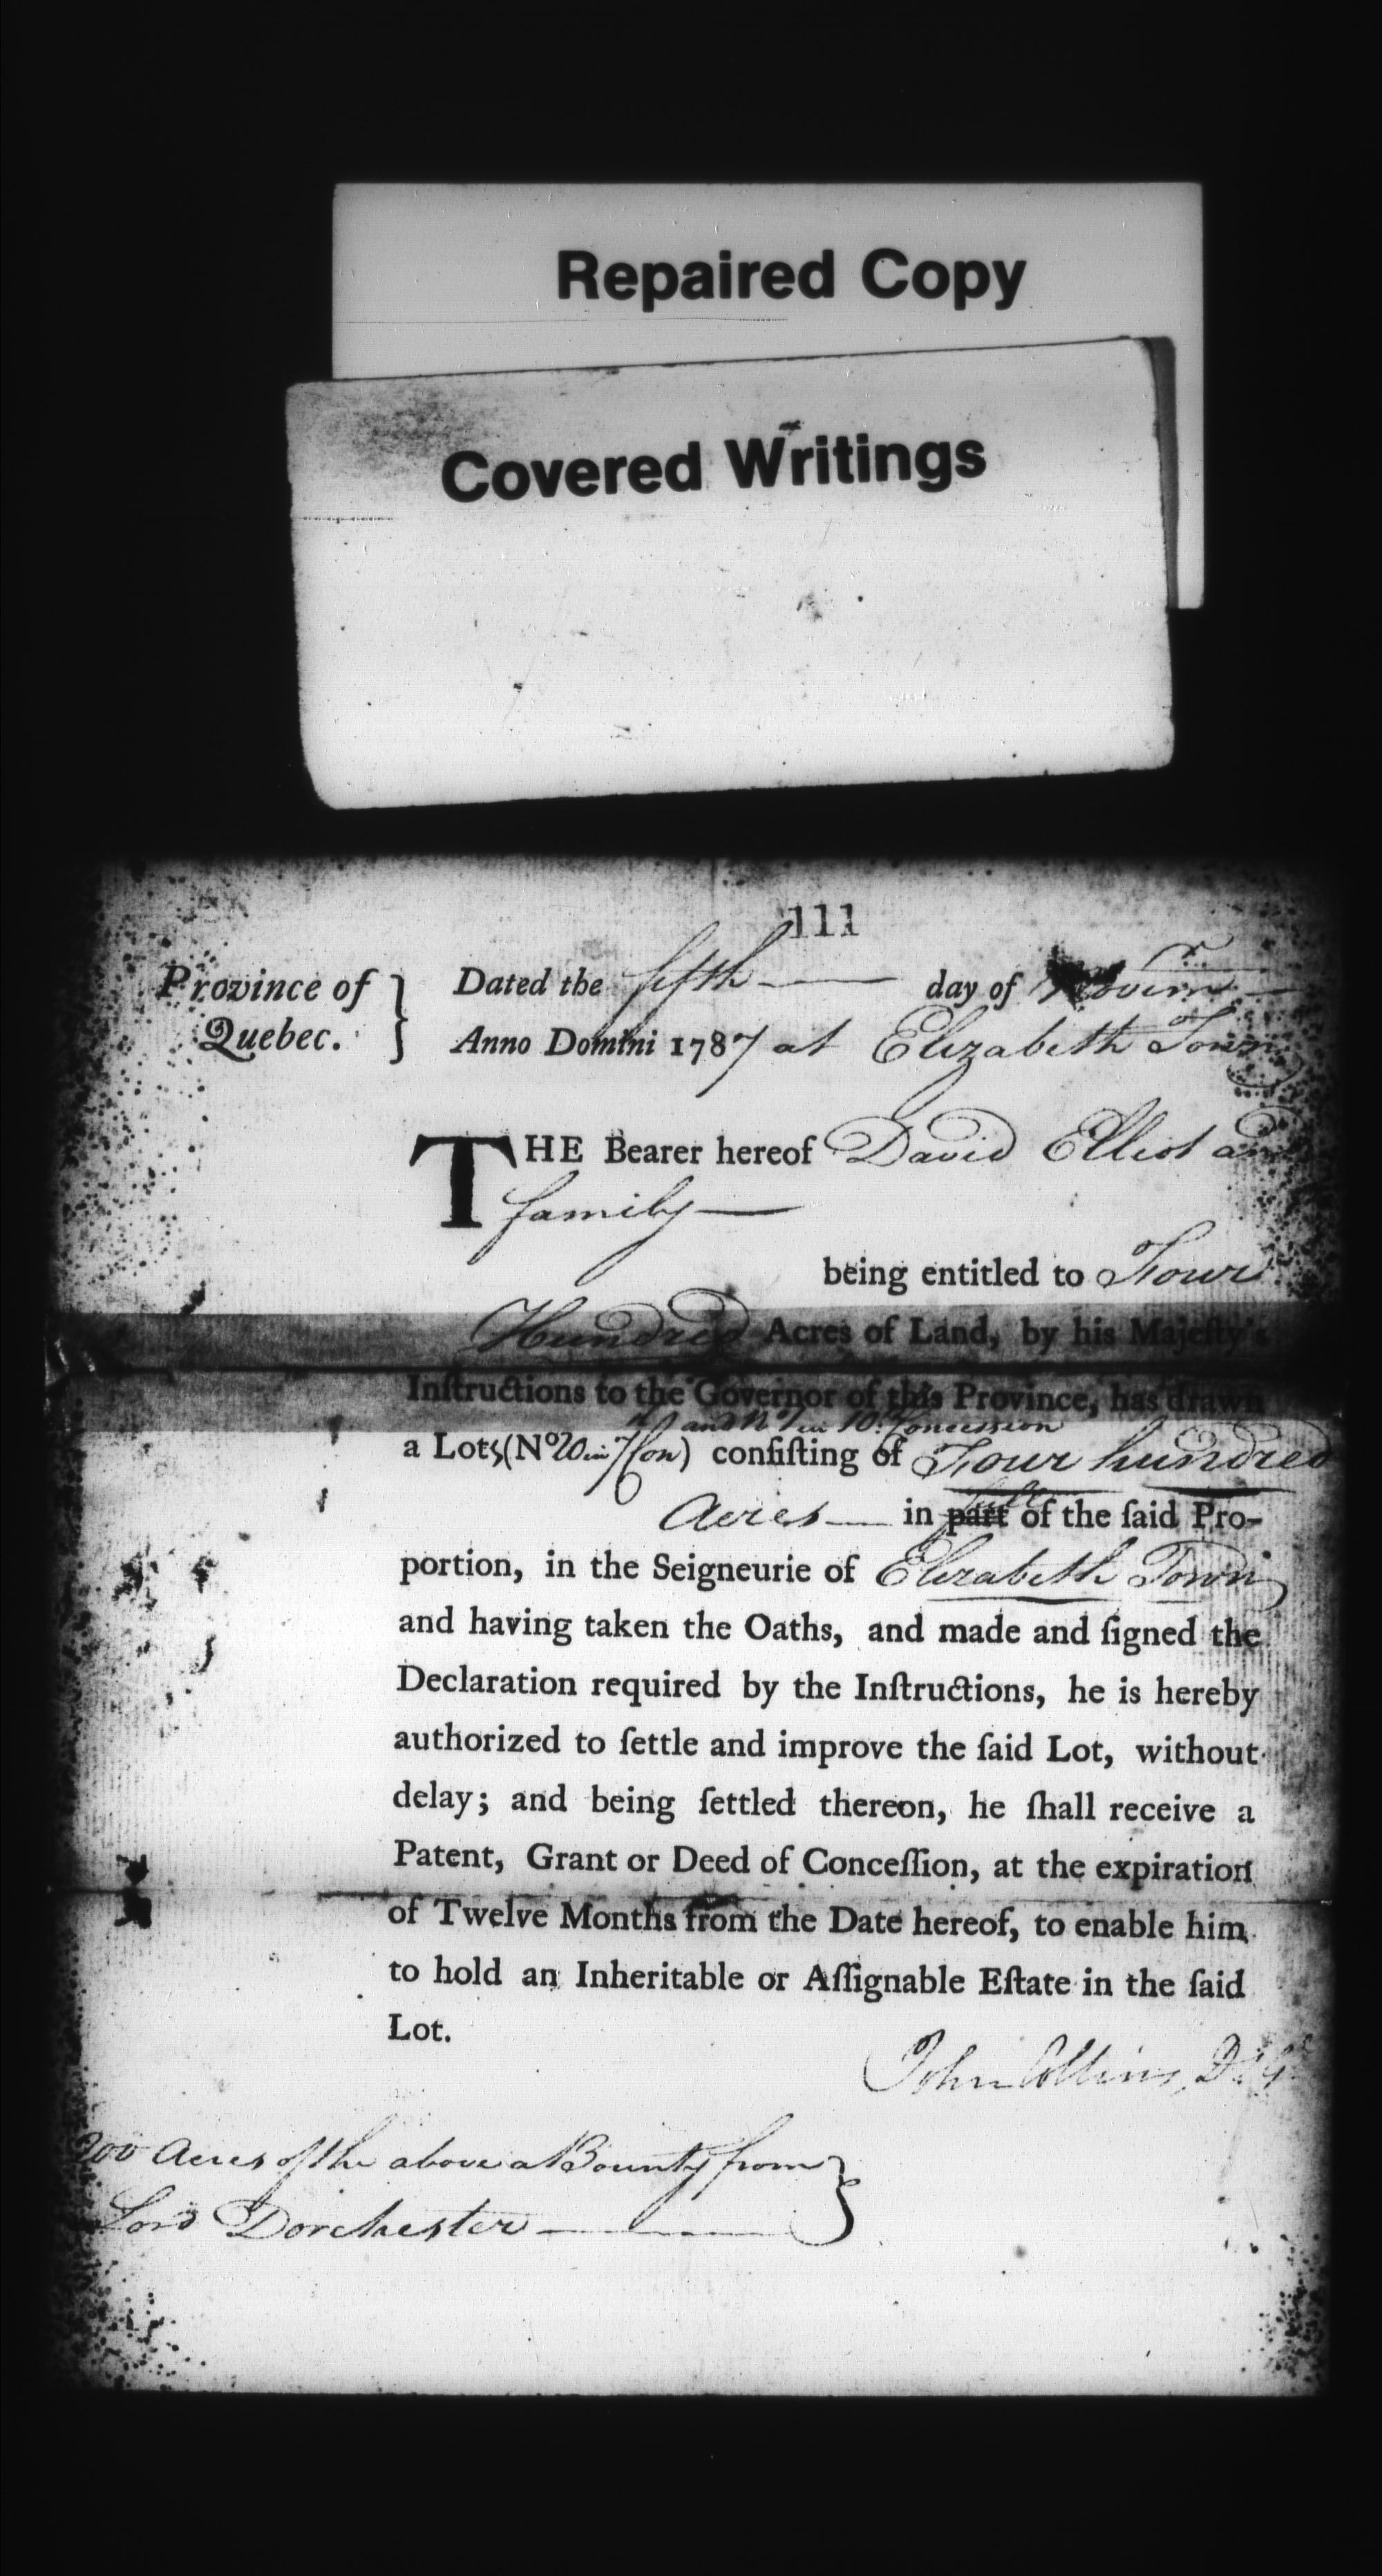 Repaired Copy
Covered Writings
111
Province of Quebec.
Dated the fifth day of Novemr
Anno Domini 1787 at Elizabeth Town
THE Bearer hereof David Elliot and
family
being entitled to Four
Hundred Acres of Land, by his Majeſty's
Inſtructions to the Governor of this Province, has drawn
and N 7 in 10th Conceſsion
a Lots (No 20 in 7 Con) conſiſting of Four hundred
Acres in part full of the ſaid Pro-
portion, in the Seigneurie of Elizabeth Town
and having taken the Oaths, and made and ſigned the
Declaration required by the Inſtructions, he is hereby
authorized to ſettle and improve the ſaid Lot, without
delay; and being ſettled thereon, he ſhall receive a
Patent, Grant or Deed of Conceſſion, at the expiration
of Twelve Months from the Date hereof, to enable him
to hold an Inheritable or Aſſignable Eſtate in the ſaid
Lot.
John Collins, D.
200 Acres of the above a Bounty from
Lord Dorchester